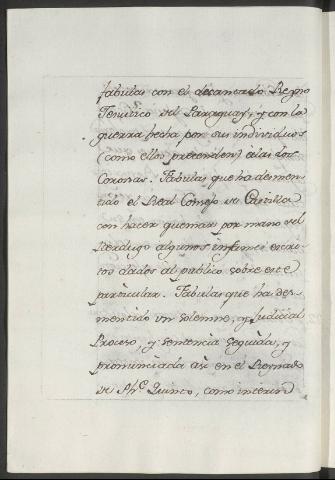 fabulas con el decantado Reyno
Jesuitico del Paraguay, y con la
guerra hecha por sus individuos
(como ellos pretenden) a las dos
Coronas. Fabulas que ha desmen-
tido el Real Consejo de Castilla
con hacer quemar por mano del
Verdugo algunos infames escri-
tos dados al publico sobre este
particular. Fabulas que ha des-
mentido un solemne, y Judicial
Proceso, y sentencia seguida, y
pronunciada asi en el Reynado
de Phe. Quinto, como interin